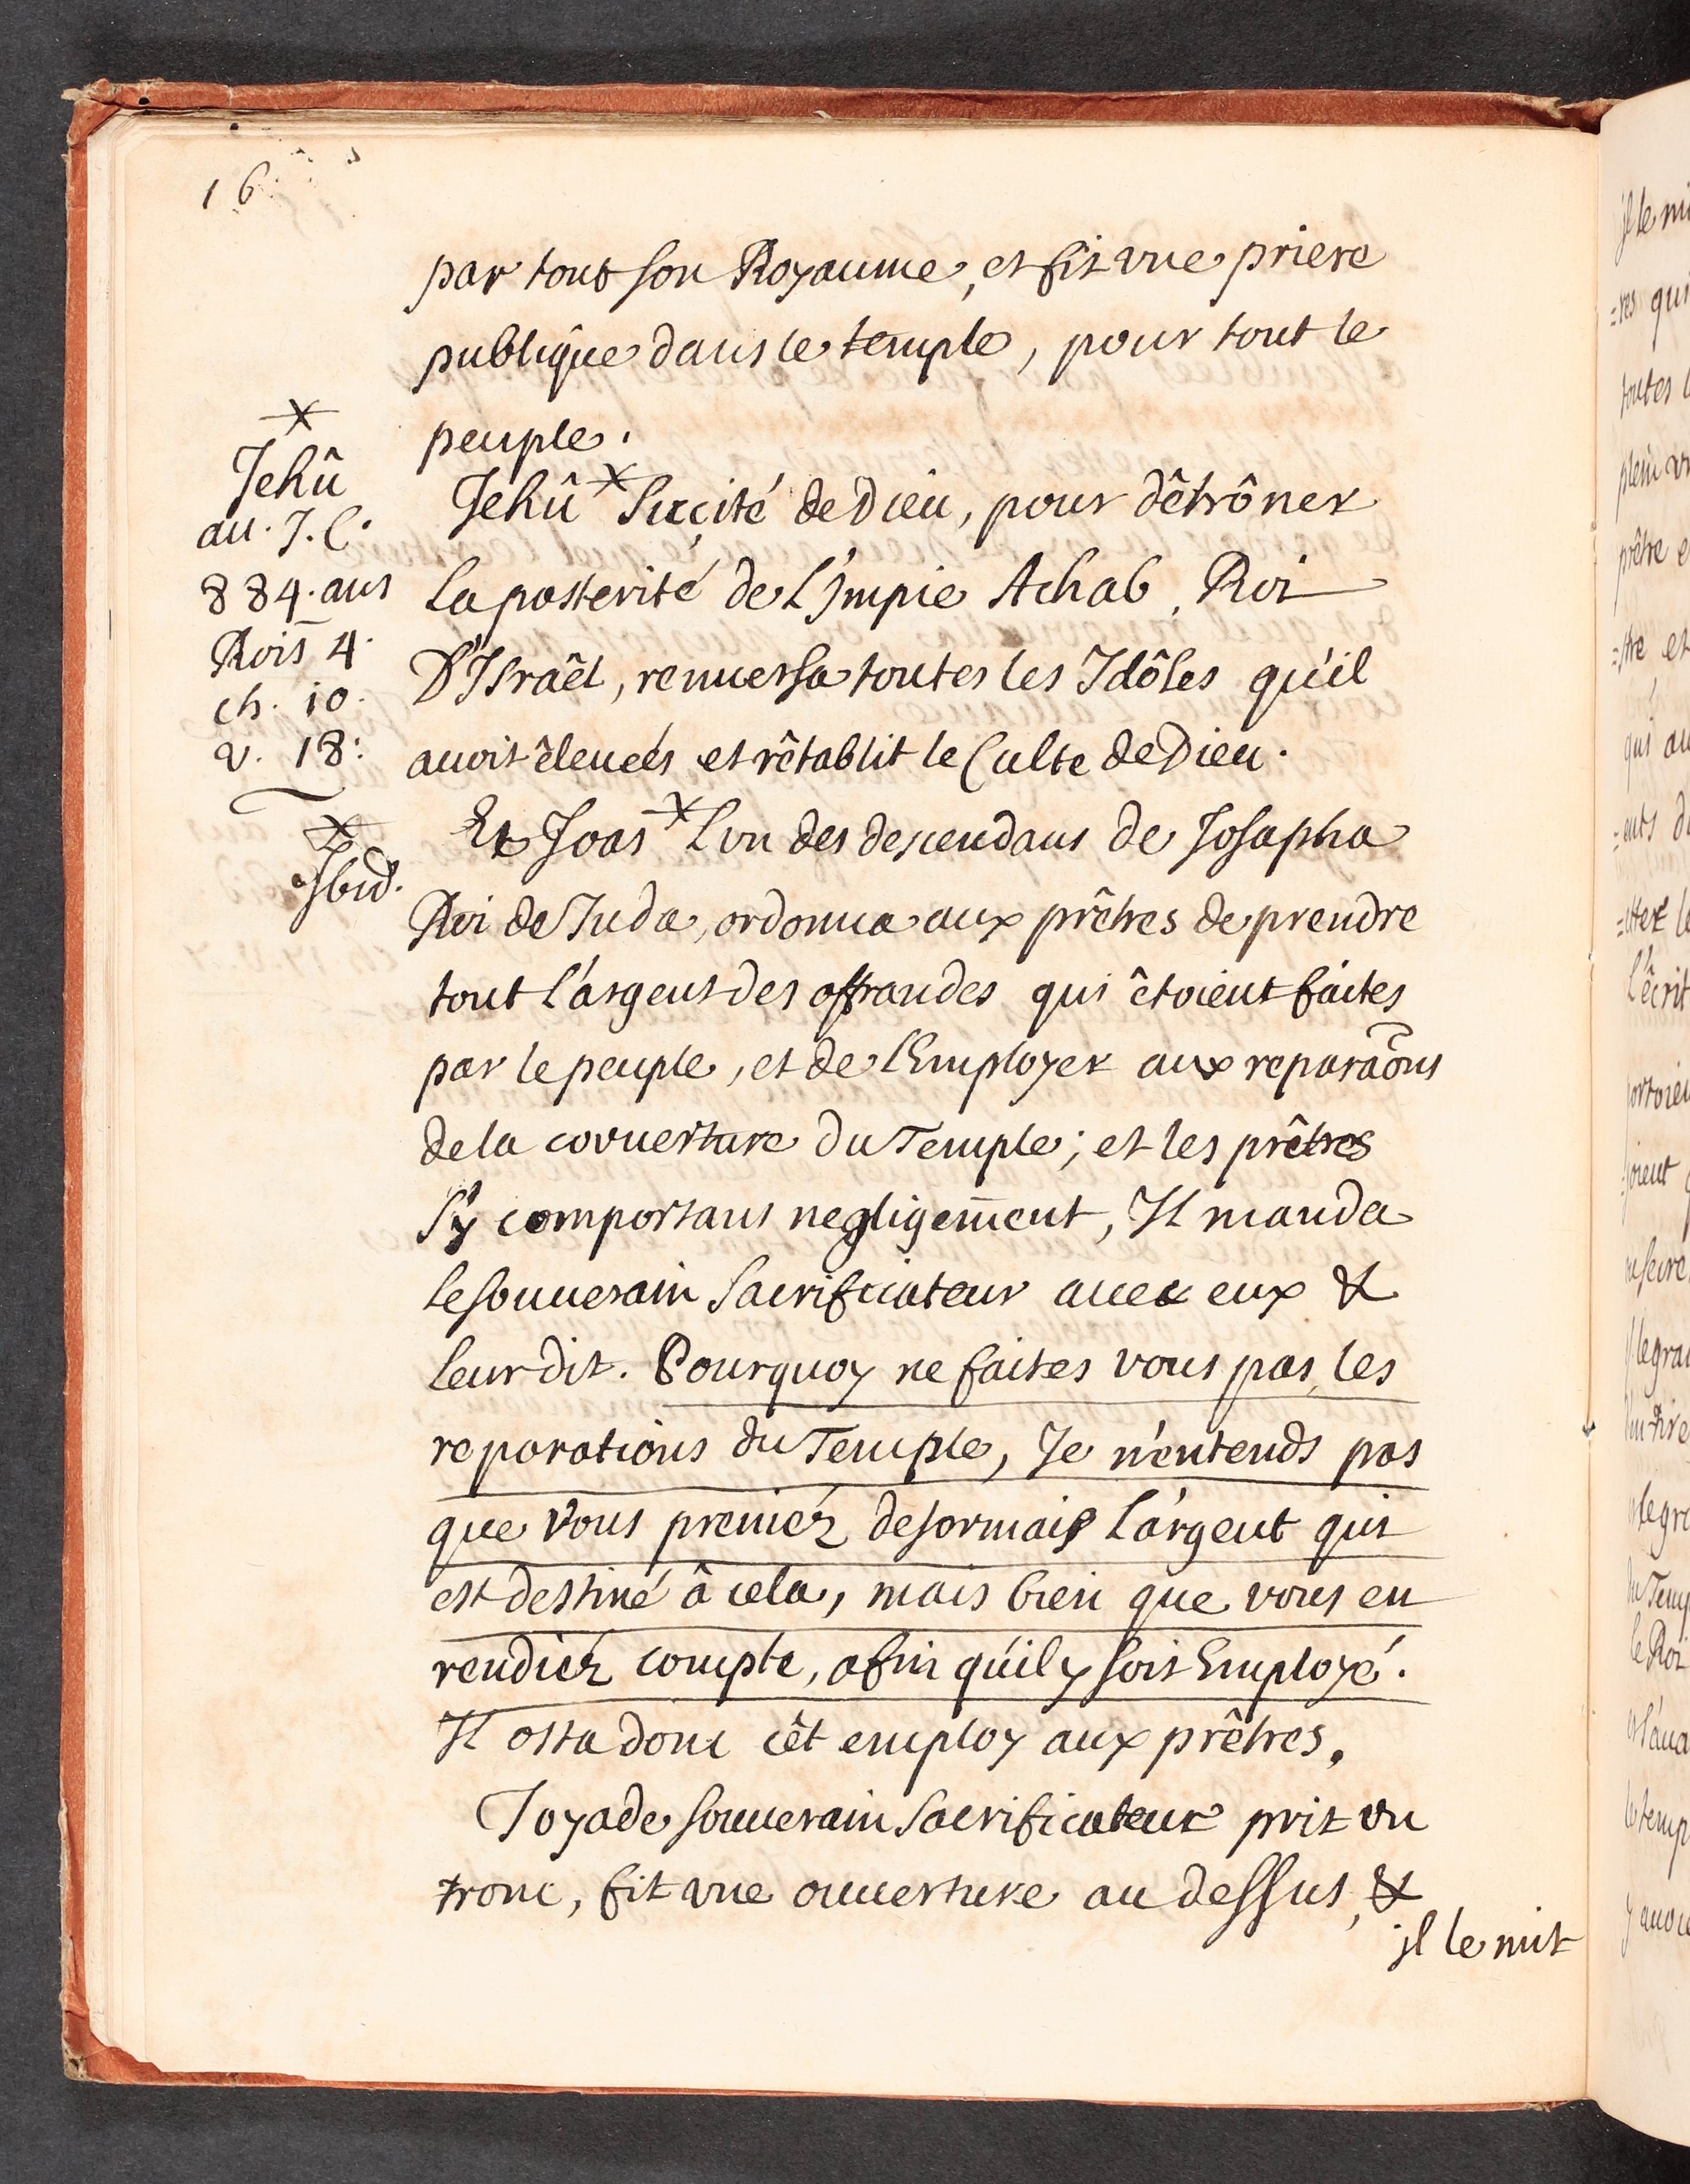 16
par tout son Royaume, et fit vne priere
publiqûe dans le temple, pour tout le
peuple.
X
Jehû
au. J. C.
884. ans
Rois 4.
ch. 10.
v. 18:
X
Jbid.
Jehû X Sucçité de Dieu, pour dêtrôner
la posterité de L'Jmpie Achab, Roi
D'Jsraêl, renuersa toutes les Jdôles qu'il
auoit êleueés et rêtablit le Culte de Dieu.
Et Joas X L'vn des descendans de Josapha
Roi de Juda, ordonna aux prêtres de prendre
tout l'argent des offrandes qui êtoient faites
par le peuple, et de l'Employer aux reparâons
de la couuerture du Temple; et les prêtres
s'y comportans negligem̄ent, Jl manda
le souuerain Sacrificateur auec eux &
leur dit. Pourquoy ne faites vous pas, les
reparations du Temple, Je n'entends pas
que Vous preniéz desormais l'argent qui
est destiné â cela, mais bien que vous en
rendiéz compte, afin qu'il y soit Employé.
Jl osta donc cêt employ aux prêtres.
Joyade souuerain Sacrificateur prit vn
tronc, fit vne ouuerture au dessus, &
jl le mit